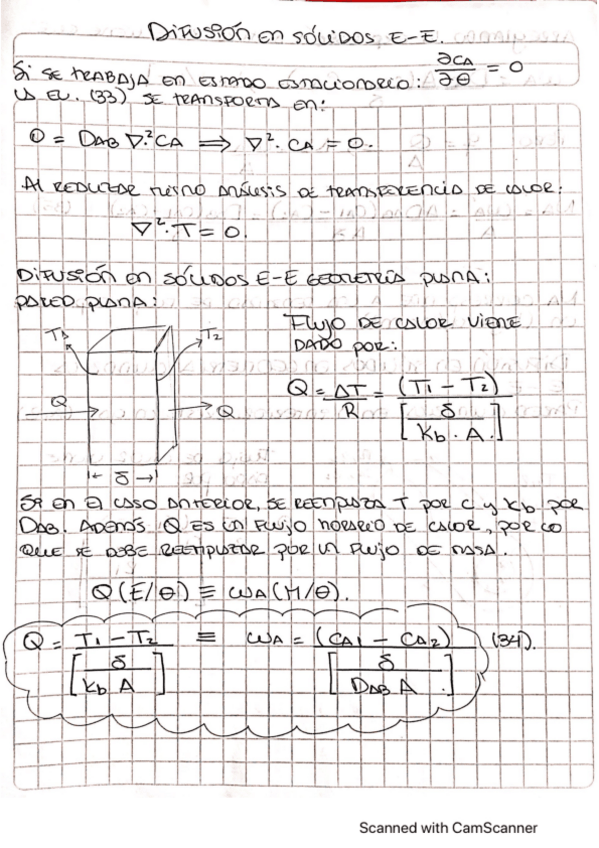 DIFUSIÓN EN SÓLIDOS E-E.
SI SE TRABAJA EN ESTADO ESTACIONARIO: ∂CA/∂θ = 0
LA EC. (33) SE TRANSFORMA EN:
0 = DAB ∇·²CA ⟹ ∇²·CA = 0.
AL REALIZAR MISMO ANÁLISIS DE TRANSFERENCIA DE CALOR:
∇²·T = 0.
DIFUSIÓN EN SÓLIDOS E-E GEOMETRÍA PLANA:
PARED PLANA:
T1 T2
Q Q
δ
FLUJO DE CALOR VIENE
DADO POR:
Q = ΔT/R = (T1 - T2)/[δ/Kb·A]
SI EN EL CASO ANTERIOR, SE REEMPLAZA T POR C Y Kb POR
DAB. ADEMÁS Q ES UN FLUJO HORARIO DE CALOR, POR LO
QUE SE DEBE REEMPLAZAR POR UN FLUJO DE MASA.
Q(E/θ) ≡ WA(M/θ).
Q = T1 - T2/[δ/Kb A] ≡ WA = (CA1 - CA2)/[δ/DAB A] (34).
Scanned with CamScanner